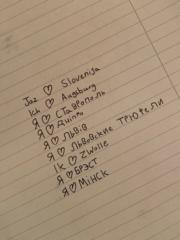 Jaz ♡ Slovenija
Ich ♡ Augsburg
Я ♡ Ставрополь
Я ♡
Я ♡ Львів
Я ♡ Львовские трюфели
Ik ♡ Zwolle
Я ♡ БРЭСТ
Я ♡ Мінск